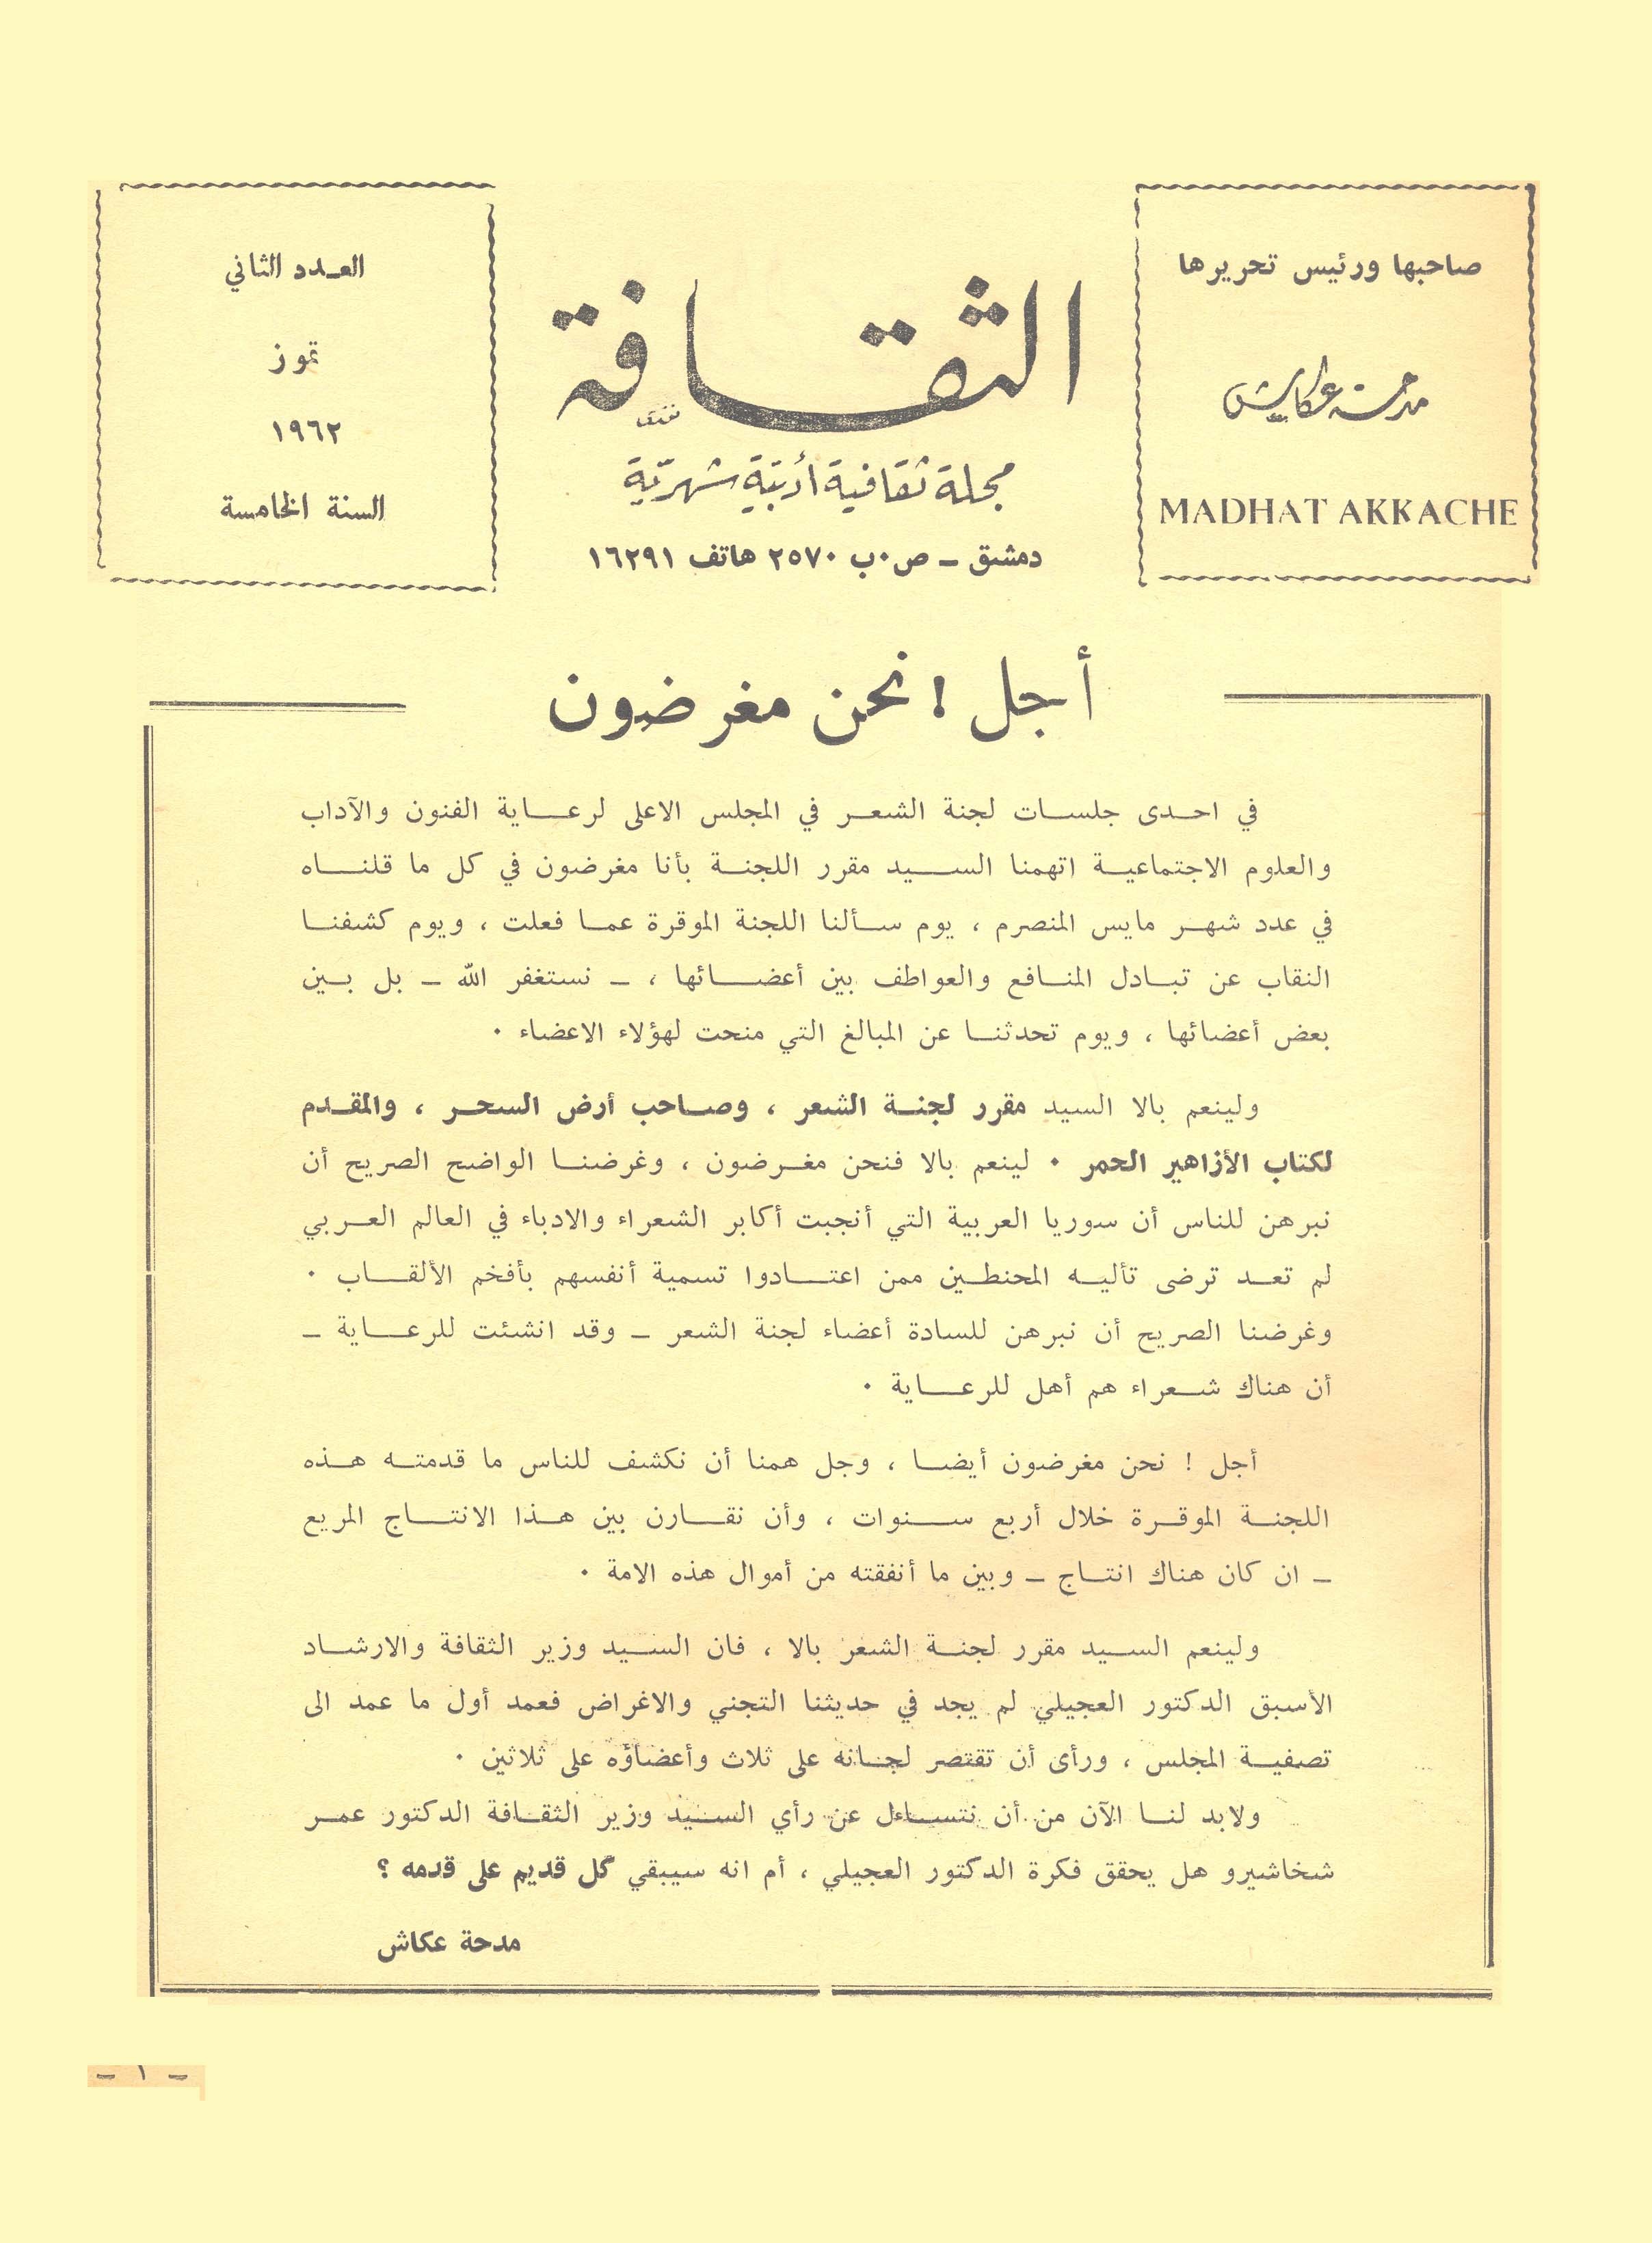 صاحبها ورئيس تحريرها
مدحة عكاش
MADHAT AKKACHE
الثقافة
مجلة ثقافية أدبية شهرية
دمشق – ص.ب ٢٥٧٠ هاتف ١٦٢٩١
العدد الثاني
تموز
١٩٦٢
السنة الخامسة
أجل ! نحن مغرضون
في احدى جلسات لجنة الشعر في المجلس الاعلى لرعاية الفنون والآداب
والعلوم الاجتماعية اتهمنا السيد مقرر اللجنة بأنا مغرضون في كل ما قلناه
في عدد شهر مايس المنصرم ، يوم سألنا اللجنة الموقرة عما فعلت ، ويوم كشفنا
النقاب عن تبادل المنافع والعواطف بين أعضائها ، – نستغفر الله – بل بين
بعض أعضائها ، ويوم تحدثنا عن المبالغ التي منحت لهؤلاء الاعضاء .
ولينعم بالا السيد مقرر لجنة الشعر ، وصاحب أرض السحر ، والمقدم
لكتاب الأزاهير الحمر . لينعم بالا فنحن مغرضون ، وغرضنا الواضح الصريح أن
نبرهن للناس أن سوريا العربية التي أنجبت أكابر الشعراء والادباء في العالم العربي
لم تعد ترضى تأليه المحنطين ممن اعتادوا تسمية أنفسهم بأفخم الألقاب .
وغرضنا الصريح أن نبرهن للسادة أعضاء لجنة الشعر – وقد انشئت للرعاية –
أن هناك شعراء هم أهل للرعاية .
أجل ! نحن مغرضون أيضا ، وجل همنا أن نكشف للناس ما قدمته هذه
اللجنة الموقرة خلال أربع سنوات ، وأن نقارن بين هذا الانتاج المريع
– ان كان هناك انتاج – وبين ما أنفقته من أموال هذه الامة .
ولينعم السيد مقرر لجنة الشعر بالا ، فان السيد وزير الثقافة والارشاد
الأسبق الدكتور العجيلي لم يجد في حديثنا التجني والاغراض فعمد أول ما عمد الى
تصفية المجلس ، ورأى أن تقتصر لجانه على ثلاث وأعضاؤه على ثلاثين .
ولابد لنا الآن من أن نتساءل عن رأي السيد وزير الثقافة الدكتور عمر
شخاشيرو هل يحقق فكرة الدكتور العجيلي ، أم انه سيبقي كل قديم على قدمه ؟
مدحة عكاش
– ١ –